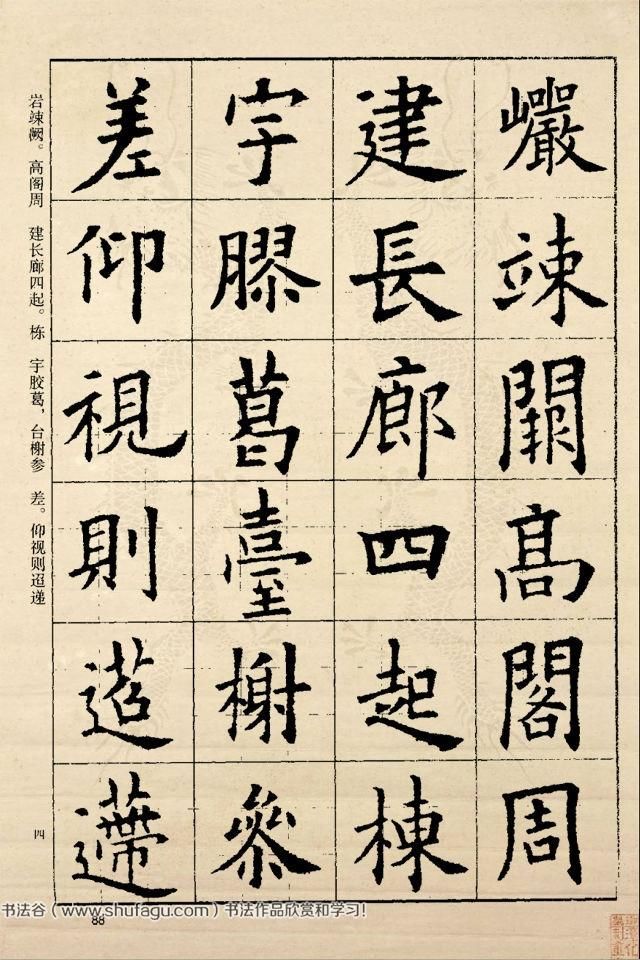 巖竦闕高閣周
建長廊四起棟
宇膠葛臺榭參
差仰視則迢遰
岩竦阙。高阁周 建长廊四起。栋 宇胶葛，台榭参 差。仰视则迢递
四
88
书法谷（www.shufagu.com）书法作品欣赏和学习！